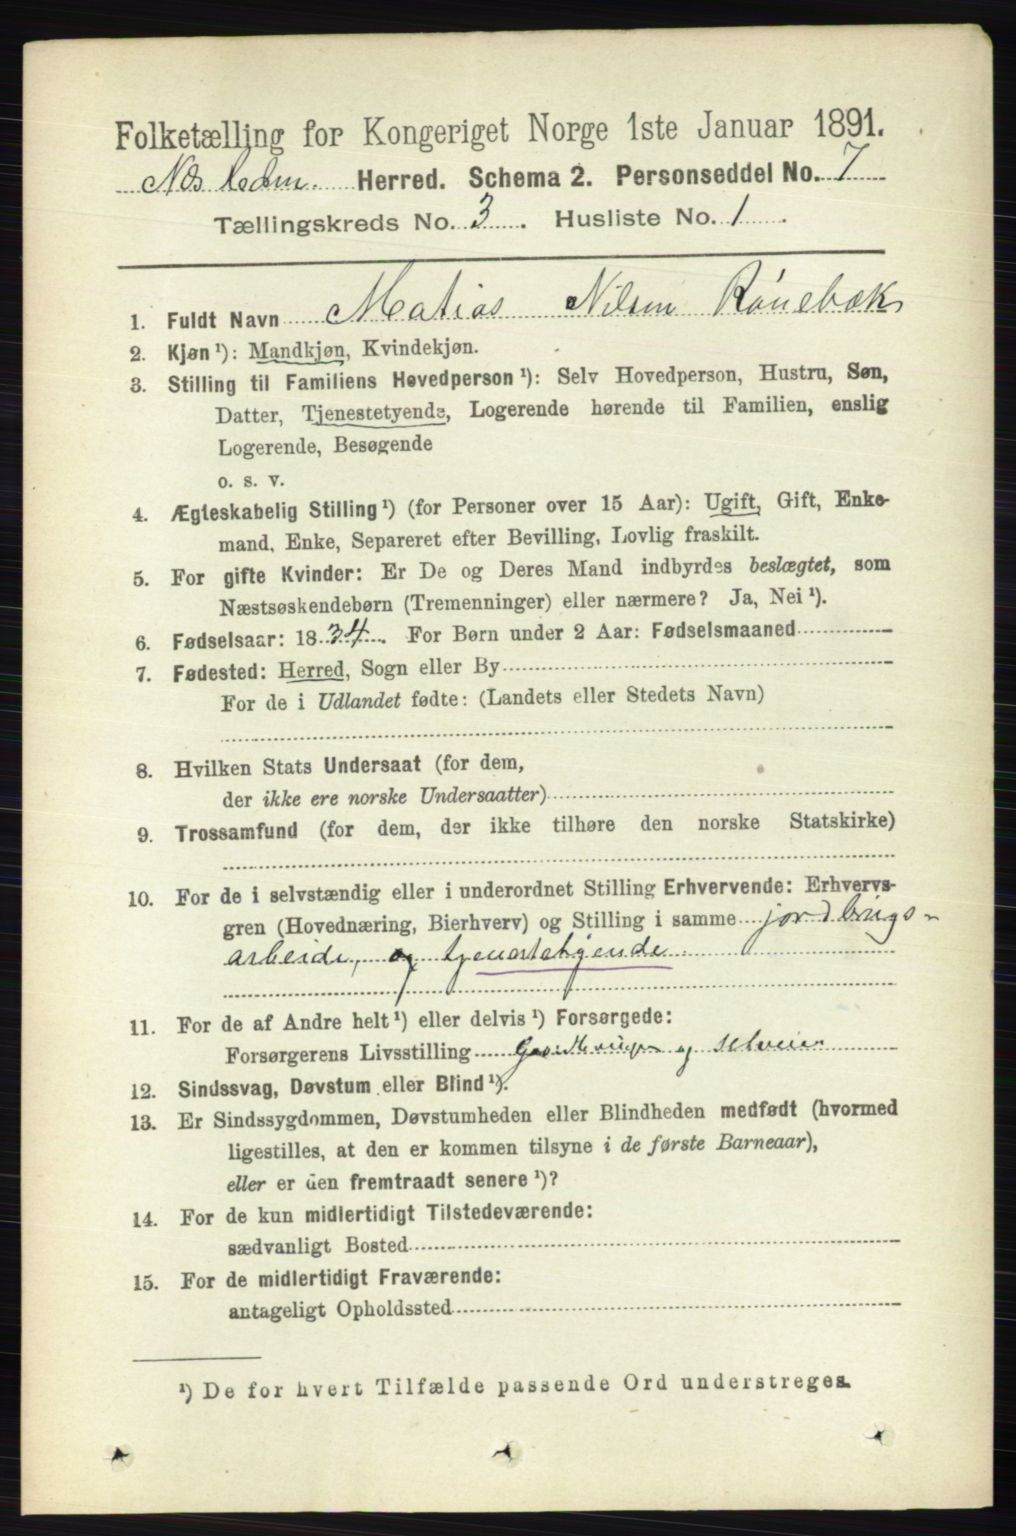 Folketælling for Kongeriget Norge 1ste Januar 1891.
Næs Herred. Schema 2. Personseddel No. 7
Tællingskreds No. 3. Husliste No. 1.
1. Fuldt Navn Matias Nilsen Rønebæk
2. Kjøn ¹): Mandkjøn, Kvindekjøn.
3. Stilling til Familiens Hovedperson ¹): Selv Hovedperson, Hustru, Søn,
Datter, Tjenestetyende, Logerende hørende til Familien, enslig
Logerende, Besøgende
o. s. v.
4. Ægteskabelig Stilling ¹) (for Personer over 15 Aar): Ugift, Gift, Enke-
mand, Enke, Separeret efter Bevilling, Lovlig fraskilt.
5. For gifte Kvinder: Er De og Deres Mand indbyrdes beslægtet, som
Næstsøskendebørn (Tremenninger) eller nærmere? Ja, Nei ¹).
6. Fødselsaar: 1834. For Børn under 2 Aar: Fødselsmaaned
7. Fødested: Herred, Sogn eller By
For de i Udlandet fødte: (Landets eller Stedets Navn)
8. Hvilken Stats Undersaat (for dem,
der ikke ere norske Undersaatter)
9. Trossamfund (for dem, der ikke tilhøre den norske Statskirke)
10. For de i selvstændig eller i underordnet Stilling Erhvervende: Erhvervs-
gren (Hovednæring, Bierhverv) og Stilling i samme jordbrugs-
arbeide, og tjenestetyende
11. For de af Andre helt ¹) eller delvis ¹) Forsørgede:
Forsørgerens Livsstilling og selveier
12. Sindssvag, Døvstum eller Blind ¹).
13. Er Sindssygdommen, Døvstumheden eller Blindheden medfødt (hvormed
ligestilles, at den er kommen tilsyne i de første Barneaar),
eller er den fremtraadt senere ¹)?
14. For de kun midlertidigt Tilstedeværende:
sædvanligt Bosted
15. For de midlertidigt Fraværende:
antageligt Opholdssted
¹) De for hvert Tilfælde passende Ord understreges.